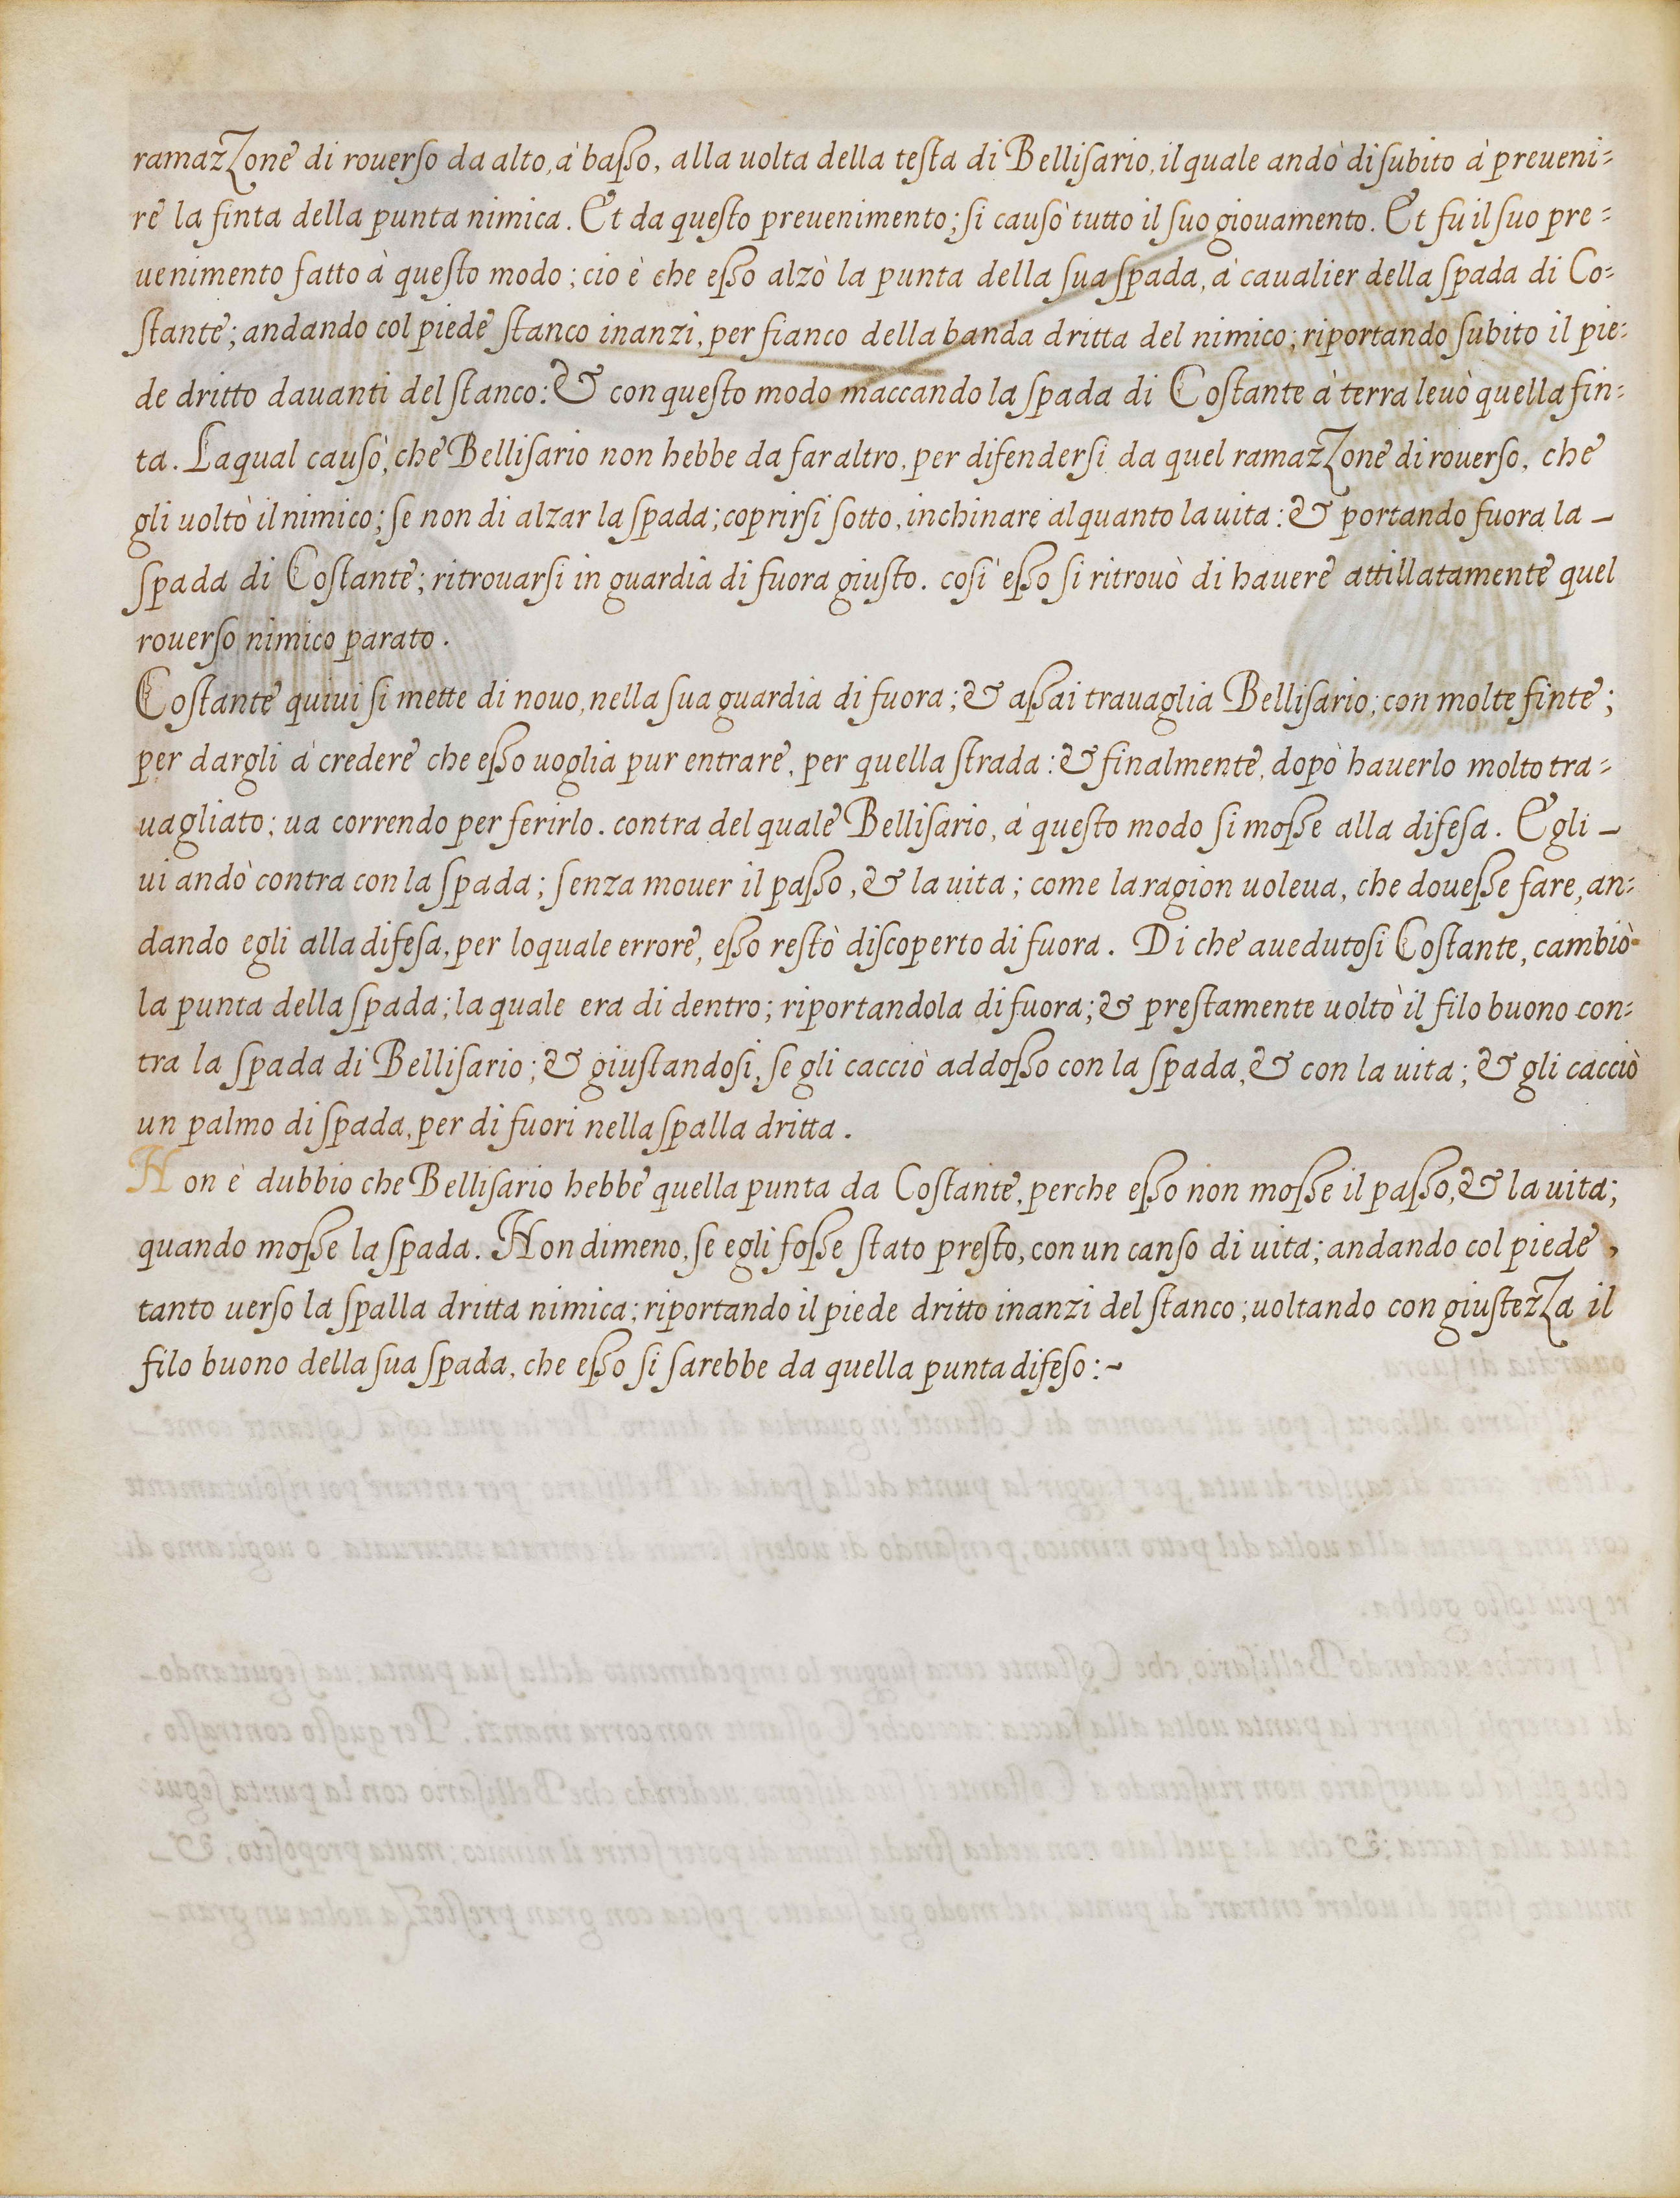 ramazzone di rouerſo da alto, à baſſo, alla uolta della teſta di Belliſario, il quale andò di ſubito à preueni=
re la finta della punta nimica. Et da queſto preuenimento; ſi cauſò tutto il ſuo giouamento. Et fu il ſuo pre=
uenimento fatto à queſto modo; cio è che eſſo alzò la punta della ſua ſpada, à caualier della ſpada di Co=
ſtante; andando col piede ſtanco inanzi, per fianco della banda dritta del nimico; riportando ſubito il pie=
de dritto dauanti del ſtanco: & con queſto modo maccando la ſpada di Coſtante à terra leuò quella fin=
ta. Laqual cauſò, che Belliſario non hebbe da far altro, per difenderſi da quel ramazzone di rouerſo, che
gli uoltò il nimico; ſe non di alzar la ſpada; coprirſi ſotto, inchinare alquanto la uita: & portando fuora la _
ſpada di Coſtante; ritrouarſi in guardia di fuora giuſto. coſi eſſo ſi ritrouò di hauere attillatamente quel
rouerſo nimico parato.
Coſtante quiui ſi mette di nouo, nella ſua guardia di fuora; & aſſai trauaglia Belliſario; con molte finte;
per dargli à credere che eſſo uoglia pur entrare, per quella ſtrada: & finalmente, dopò hauerlo molto tra=
uagliato; ua correndo per ferirlo. contra del quale Belliſario, à queſto modo ſi moſſe alla difeſa. Egli _
ui andò contra con la ſpada; ſenza mouer il paſſo, & la uita; come la ragion uoleua, che doueſſe fare, an=
dando egli alla difeſa, per loquale errore, eſſo reſtò diſcoperto di fuora. Di che auedutoſi Coſtante, cambiò
la punta della ſpada; la quale era di dentro; riportandola di fuora; & preſtamente uoltò il filo buono con=
tra la ſpada di Belliſario; & giuſtandoſi, ſe gli cacciò addoſſo con la ſpada, & con la uita; & gli cacciò
un palmo di ſpada, per di fuori nella ſpalla dritta.
Non è dubbio che Belliſario hebbe quella punta da Coſtante, perche eſſo non moſſe il paſſo, & la uita;
quando moſſe la ſpada. Nondimeno, ſe egli foſſe ſtato preſto, con un canſo di uita; andando col piede,
tanto uerſo la ſpalla dritta nimica; riportando il piede dritto inanzi del ſtanco; uoltando con giuſtezza il
filo buono della ſua ſpada, che eſſo ſi ſarebbe da quella punta difeſo:~